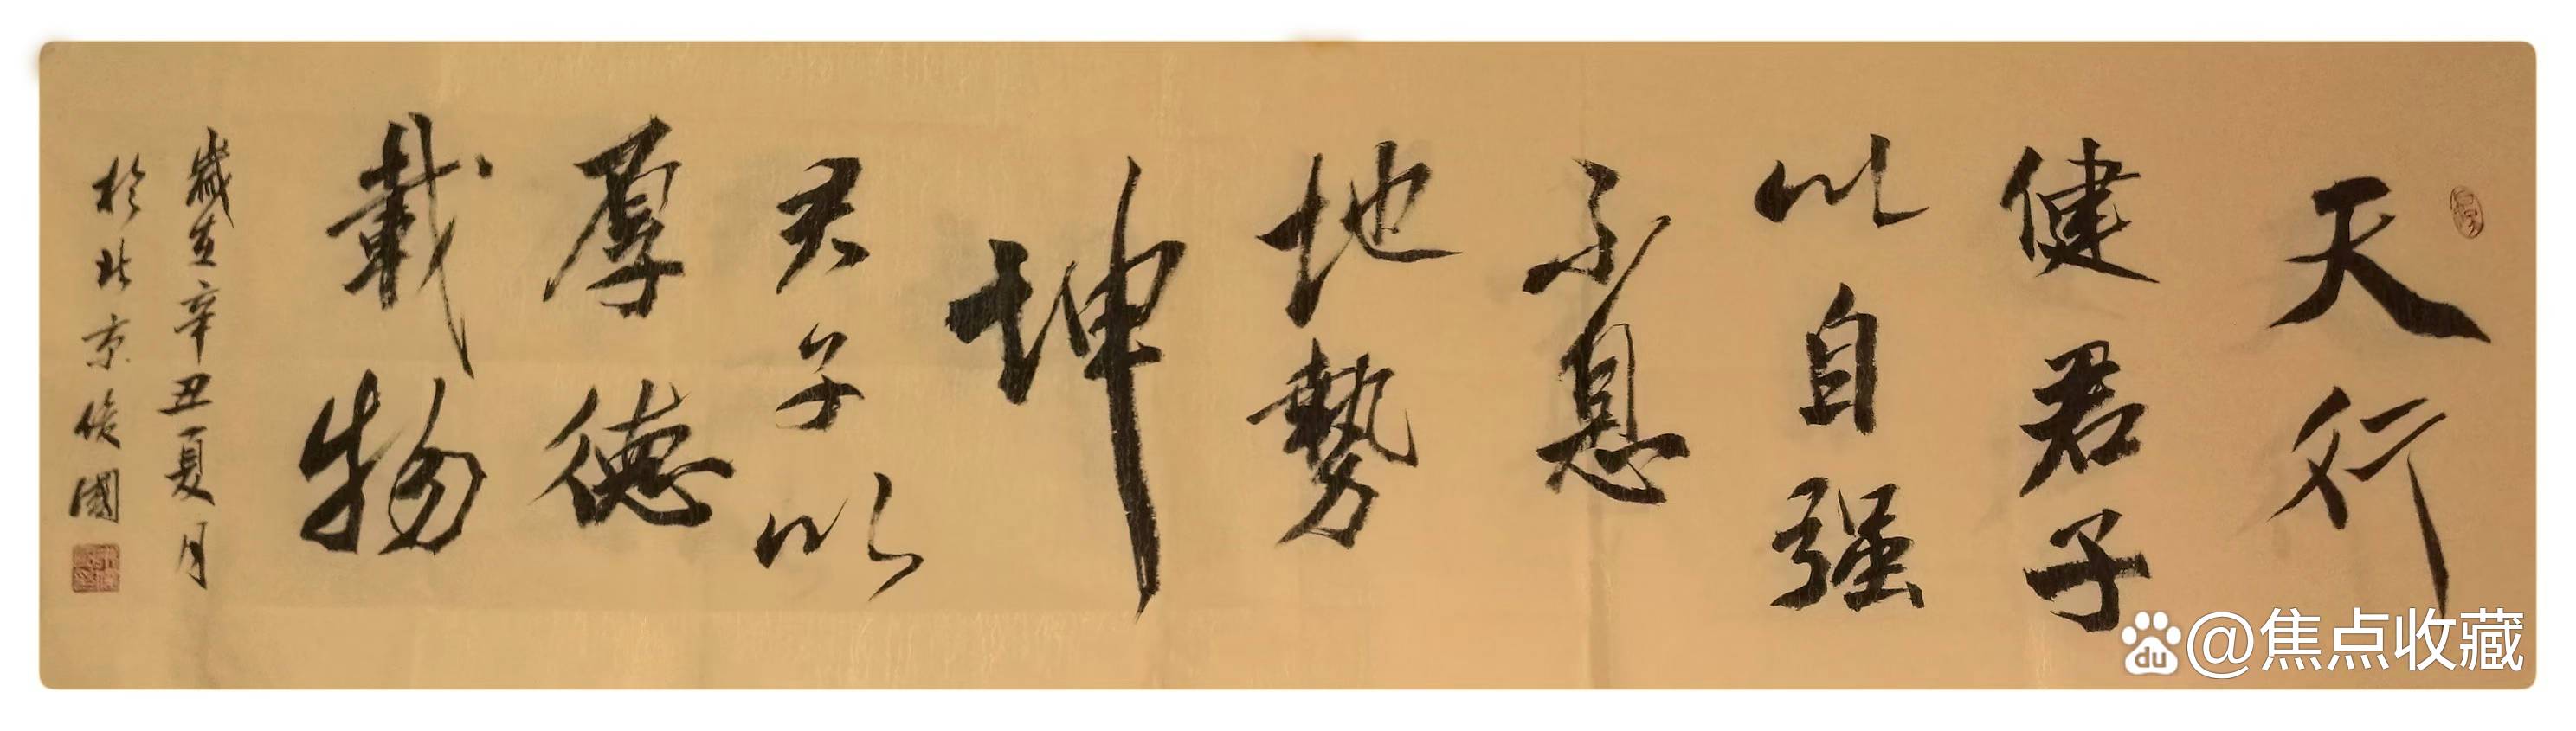 天行
健君子
以自强
不息
地势
坤
君子以
厚德
载物
岁在辛丑夏月
於北京俊國
du @焦点收藏